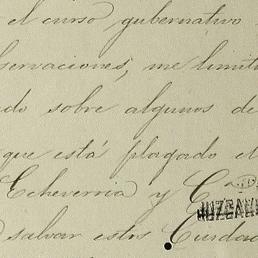 el curso gubernativo
servaciones, me limit
do sobre algunos de
que está plagado el
Echeverria y C
JUZGA
salvar estos Ciudad